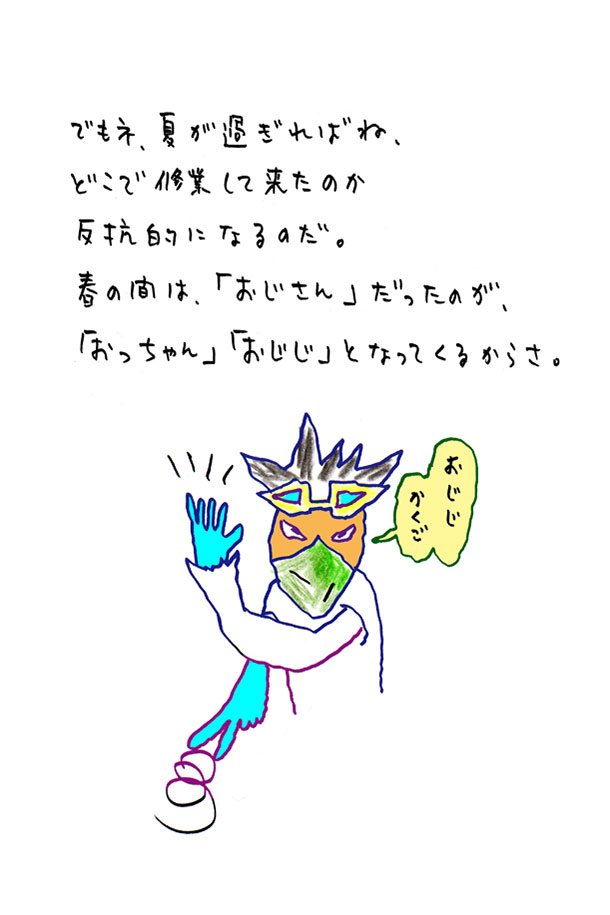 でもネ、夏が過ぎればね、
どこで修業して来たのか
反抗的になるのだ。
春の間は、「おじさん」だったのが、
「おっちゃん」「おじじ」となってくるからさ。
おじじ
かくご